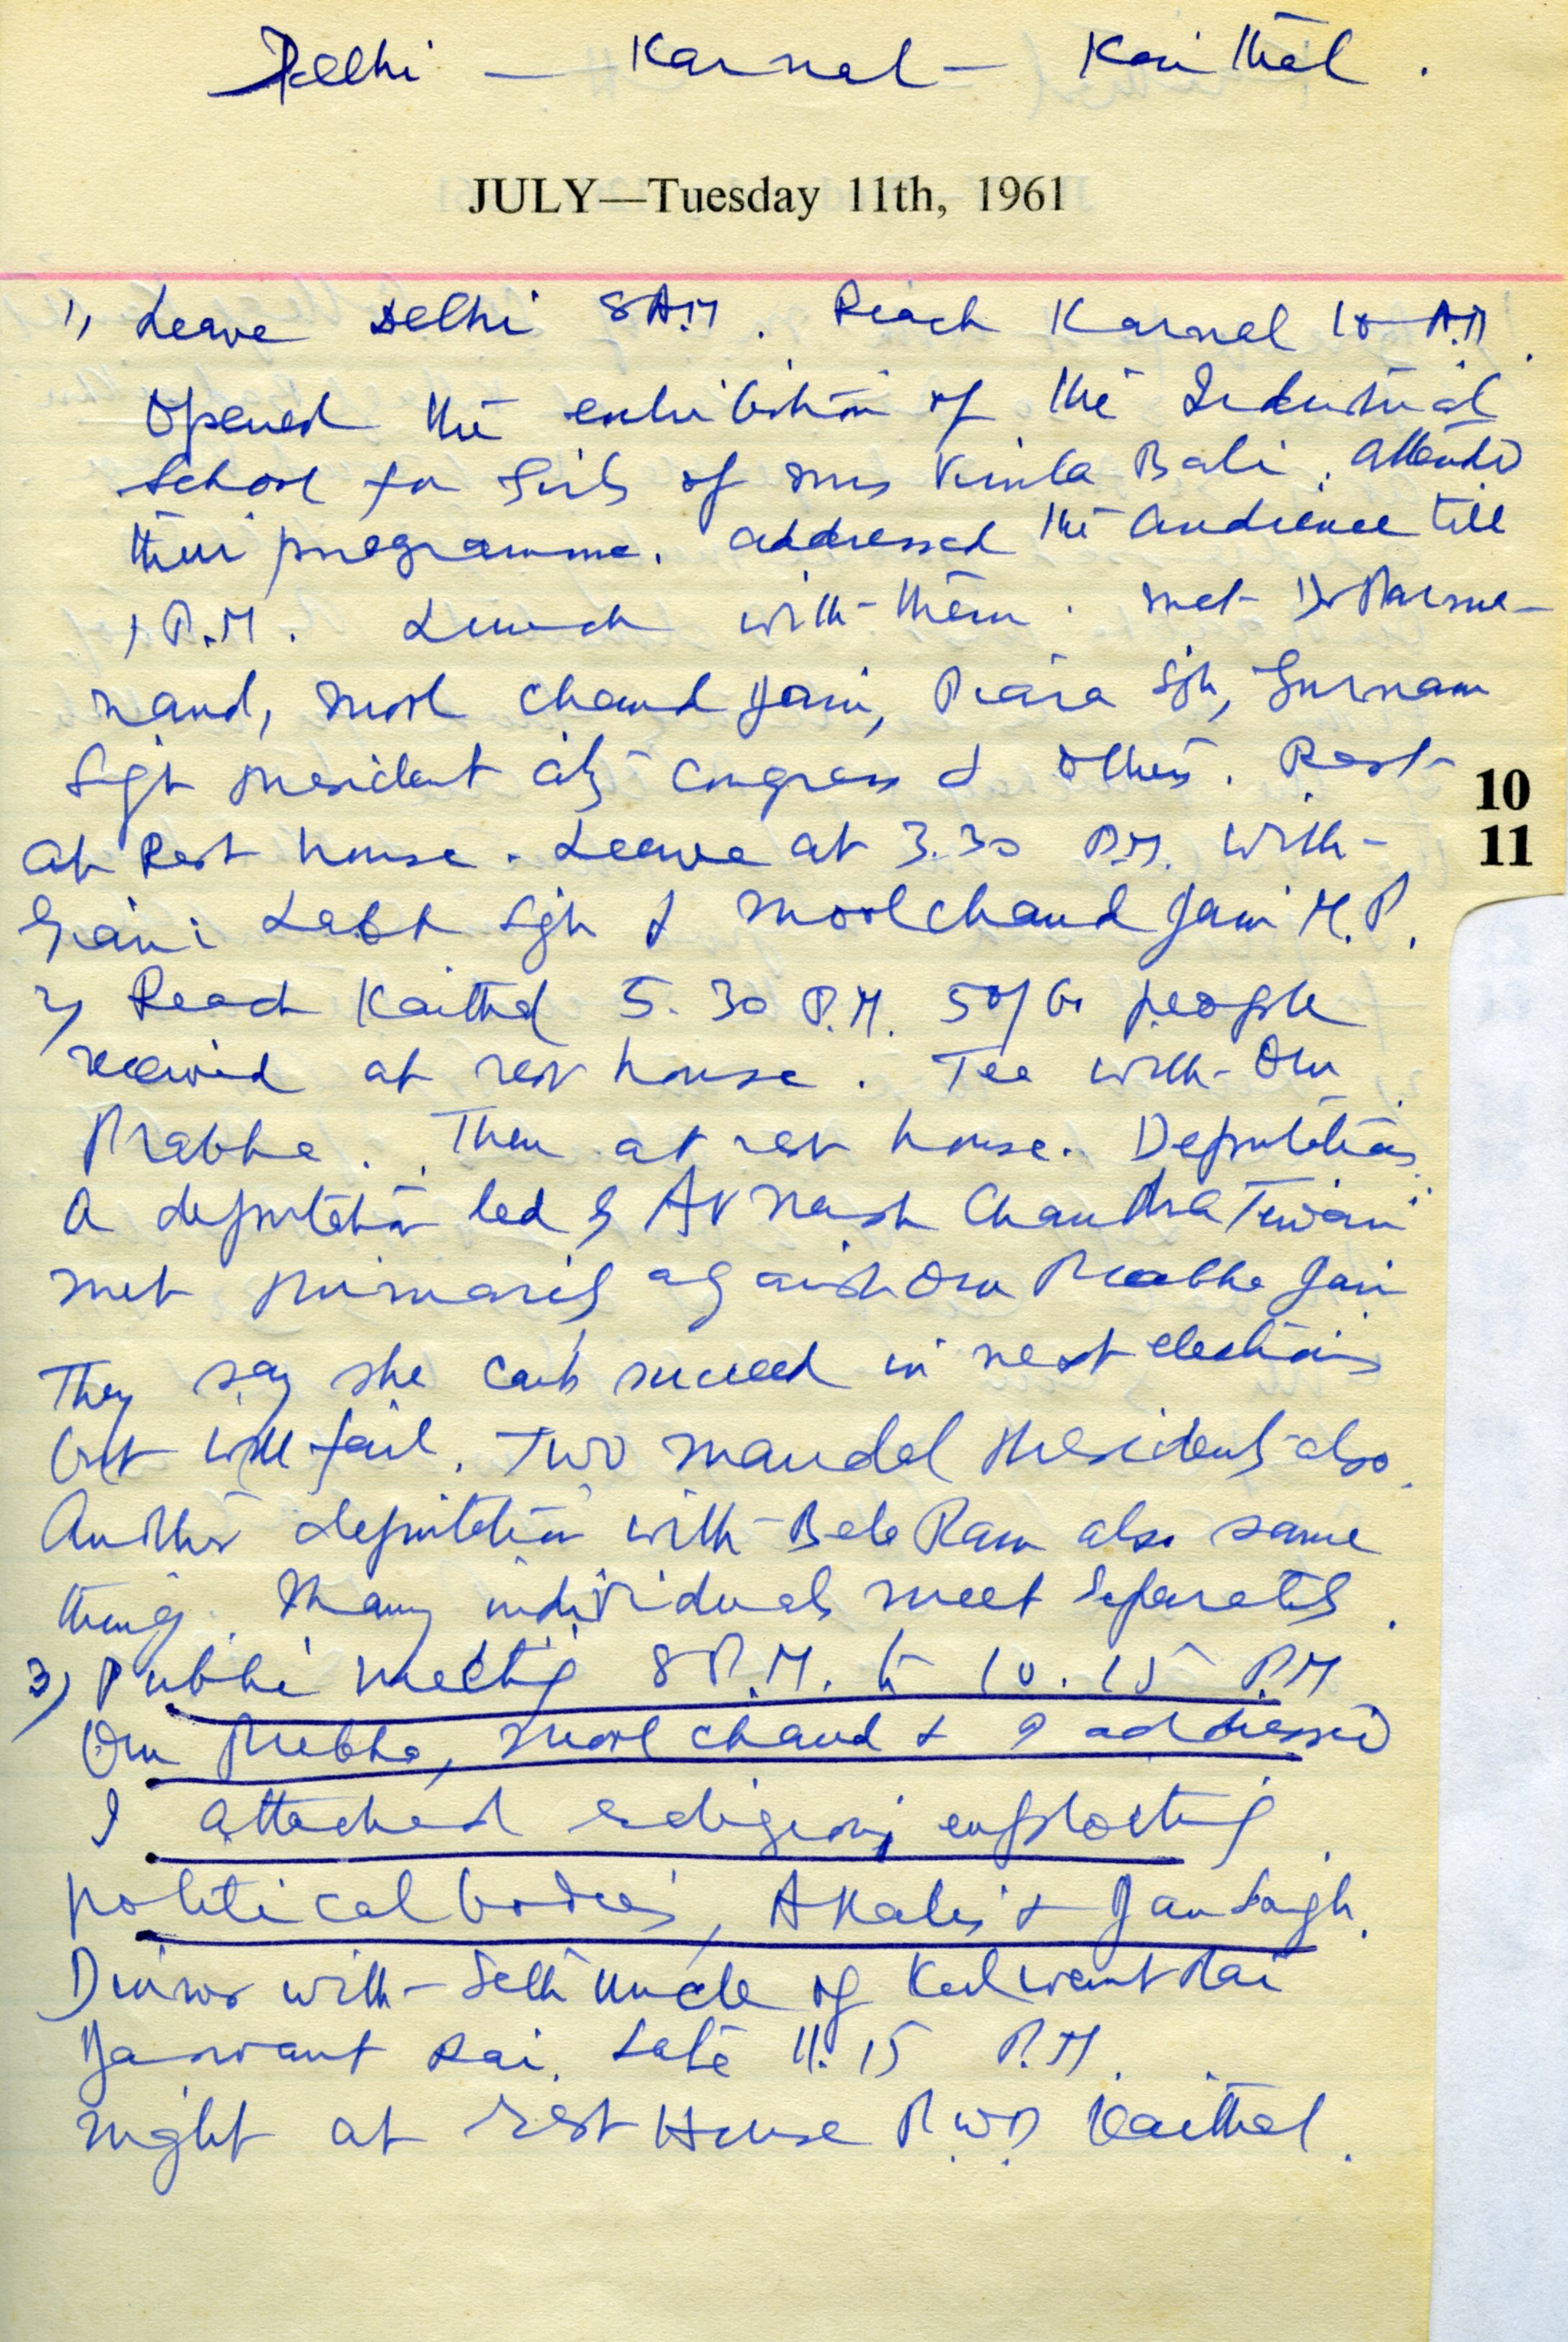 Delhi — Karnal — Kaithal.
JULY—Tuesday 11th, 1961
1) Leave Delhi 8 A.M. Reach Karnal 10 A.M.
Opened the exhibition of the Industrial
School for Girls of Mrs Bali. Attended
their programme. Addressed the audience till
1 P.M. Lunch with them. Met Dr Parma-
nand, Mool Chand Jain, Piara Sgh, Gurnam
Sgh President city Congress & others. Rest
at Rest house. Leave at 3.30 P.M. with
Giani Labh Sgh & Moolchand Jain M.P.
2) Reach Kaithal 5.30 P.M. 50/60 people
received at rest house. Tea with Om
Prabha. Then at rest house. Deputations.
A deputation led by Avnash Chandra Tewari
met primarily against Om Prabha Jain
They say she can't succeed in next elections
but will fail. Two mandal Presidents also.
Another deputation with Bela Ram also same
thing. Many individuals meet separately.
3) Public Meeting 8 P.M. to 10.15 P.M
Om Prabha, Mool Chand & I addressed
I attacked religions exploiting
political bodies, Akalis & Jan Sangh.
Dinner with Seth uncle of Kulwant Rai
Jaswant Rai. Late 11.15 P.M.
Night at rest House P.W.D. Kaithal.
10
11